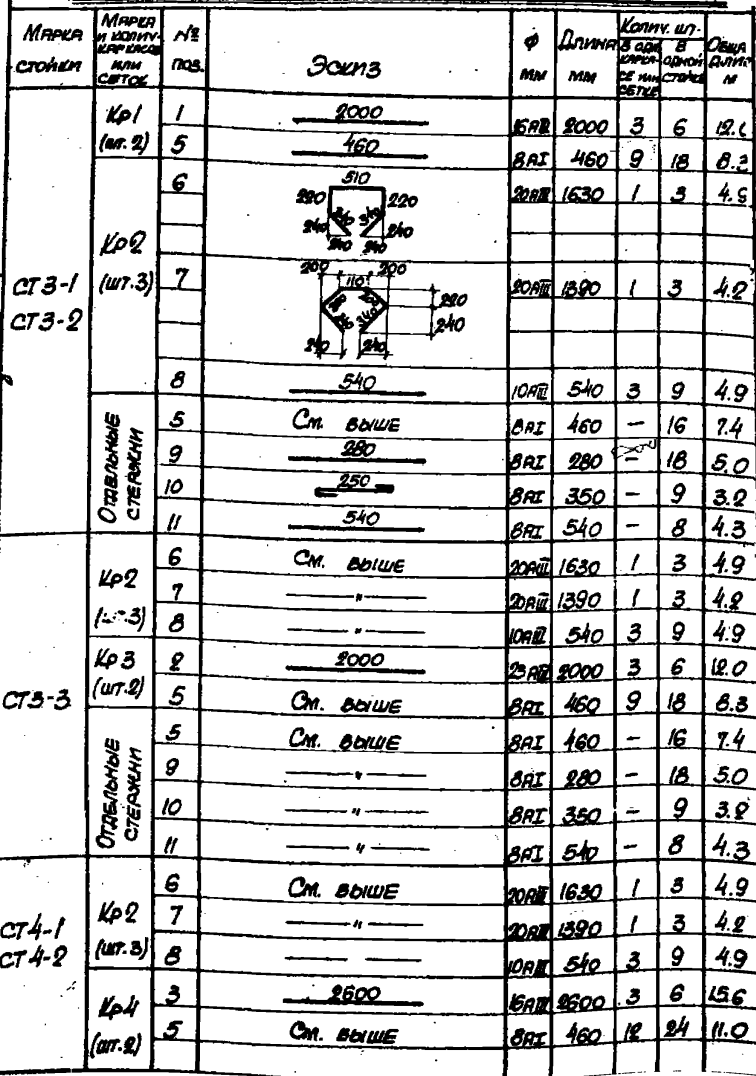 Марка стойки | Марка и колич. каркасов или сеток | №№ поз. | Эскиз | ф мм | Длина мм | Колич. шт. | В одн. каркасе или сетке | В одной стойке | Общая длина м
СТ3-1
СТ3-2
Кр1 (шт. 2) | 1 | 2000 | 16АIII | 2000 | 3 | 6 | 12.0
5 | 460 | 8АI | 460 | 9 | 18 | 8.3
Кр2 (шт.3) | 6 | 510 220 220 340 340 240 240 240 240 | 20АIII | 1630 | 1 | 3 | 4.9
7 | 200 110 200 340 340 220 240 240 240 | 20АIII | 1390 | 1 | 3 | 4.2
8 | 540 | 10АIII | 540 | 3 | 9 | 4.9
Отдельные стержни | 5 | См. выше | 8АI | 460 | – | 16 | 7.4
9 | 280 | 8АI | 280 | – | 18 | 5.0
10 | 250 | 8АI | 350 | – | 9 | 3.2
11 | 540 | 8АI | 540 | – | 8 | 4.3
СТ3-3
Кр2 (шт.3) | 6 | См. выше | 20АIII | 1630 | 1 | 3 | 4.9
7 | — " — | 20АIII | 1390 | 1 | 3 | 4.2
8 | — " — | 10АIII | 540 | 3 | 9 | 4.9
Кр3 (шт.2) | 2 | 2000 | 2000 | 3 | 6 | 12.0
5 | См. выше | 8АI | 460 | 9 | 18 | 8.3
Отдельные стержни | 5 | См. выше | 8АI | 460 | – | 16 | 7.4
9 | — " — | 8АI | 280 | – | 18 | 5.0
10 | — " — | 8АI | 350 | – | 9 | 3.2
11 | — " — | 8АI | 540 | – | 8 | 4.3
СТ4-1
СТ4-2
Кр2 (шт.3) | 6 | См. выше | 20АIII | 1630 | 1 | 3 | 4.9
7 | — " — | 20АIII | 1390 | 1 | 3 | 4.2
8 | — — | 10АIII | 540 | 3 | 9 | 4.9
Кр4 (шт.2) | 3 | 2600 | 16АIII | 2600 | 3 | 6 | 15.6
5 | См. выше | 8АI | 460 | 12 | 24 | 11.0